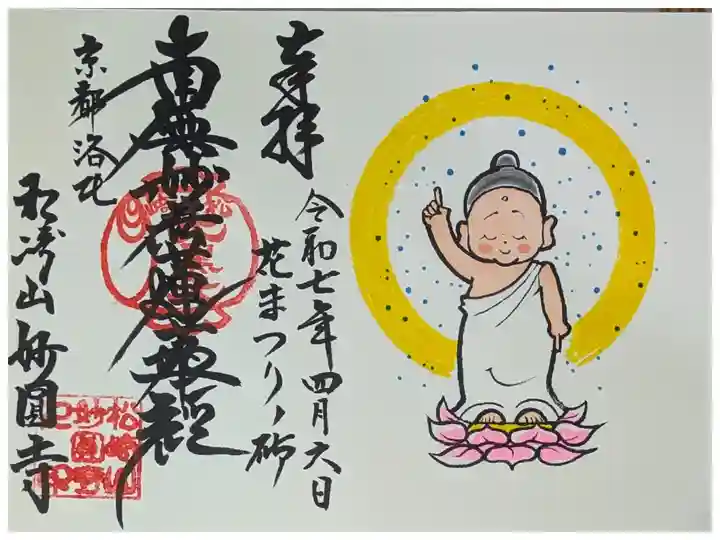 奉拝
令和七年四月六日
花まつりノ砌
南無妙法蓮華経
京都洛北
松ヶ崎山妙圓寺
松崎山
妙圓寺